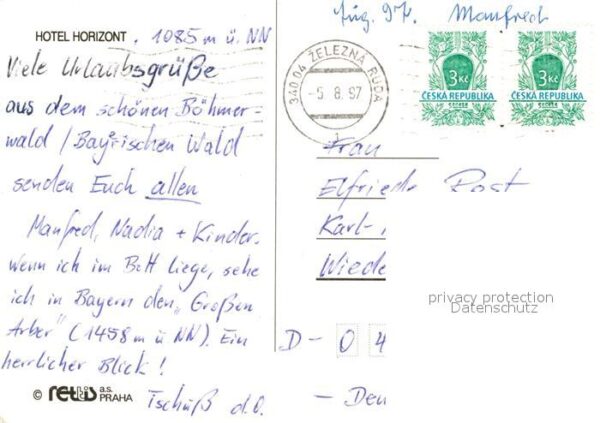 Aug. 97. Manfred
HOTEL HORIZONT . 1085 m ü. NN
Viele Urlaubsgrüße
aus dem schönen Böhmer-
wald / Bayrischen Wald
senden Euch allen
Manfred, Nadia + Kinder.
Wenn ich im Bett liege, sehe
ich in Bayern den „Großen
Arber" (1458 m ü NN). Ein
herrlicher Blick!
Tschüß d.O.
© retis a.s.
PRAHA
340 04 ŽELEZNÁ RUDA
-5.8.97
1
3 Kč
ČESKÁ REPUBLIKA
3 Kč
ČESKÁ REPUBLIKA
Frau
Elfriede Post
Karl-
Wiede
D - 04
- Deu
privacy protection
Datenschutz